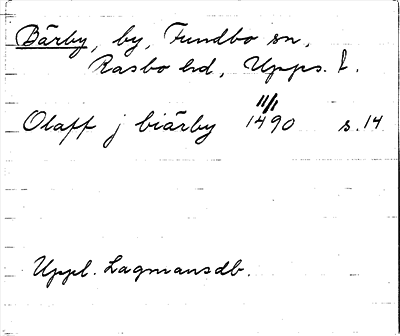 Bärby, by, Fundbo sn,
Rasbo hd, Upps. l.
11/1
Olaff j biärby 1490 s. 14
Uppl. Lagmansdb.